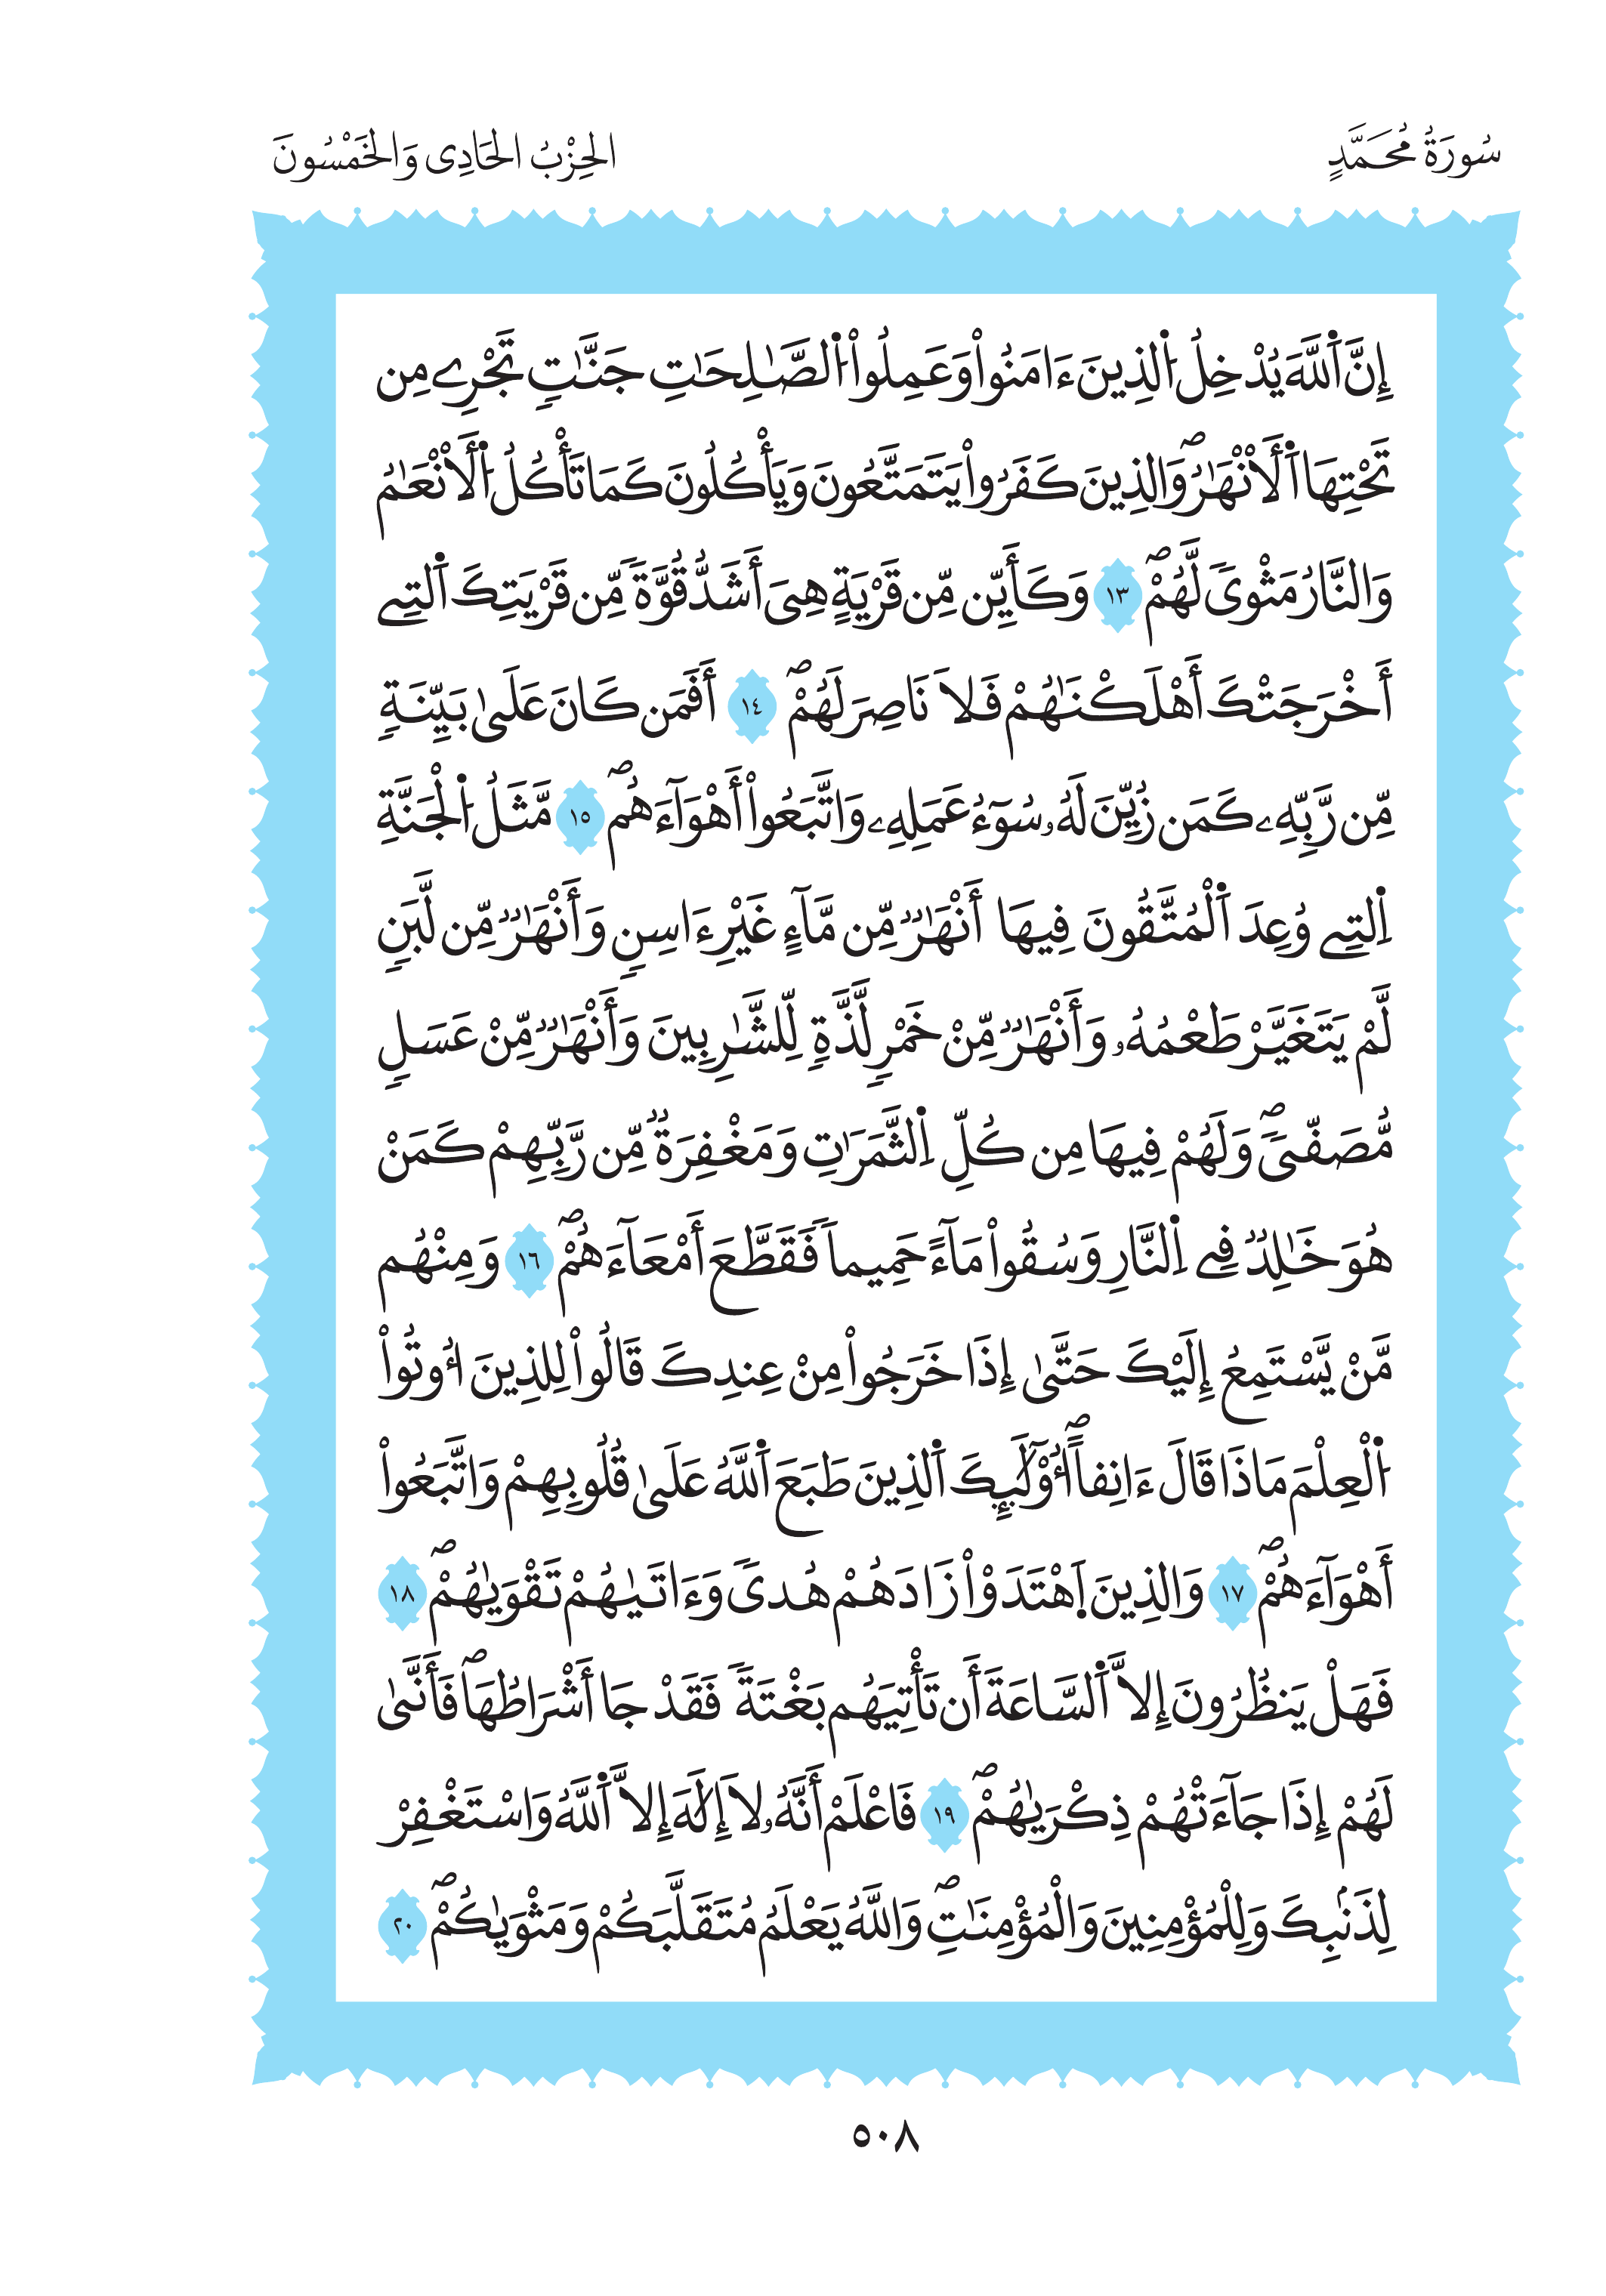 سُورَةُ مُحَمَّدٍ
الحِزْبُ الحَادِى وَالخَمْسُونَ
إِنَّ اَ۬للَّهَ يُدْخِلُ اُ۬لذِينَ ءَامَنُواْ وَعَمِلُواْ اُ۬لصَّٰلِحَٰتِ جَنَّٰتٖ تَجْرِے مِن
تَحْتِهَا اَ۬لَانْهَٰرُۖ وَالذِينَ كَفَرُواْ يَتَمَتَّعُونَ وَيَأْكُلُونَ كَمَا تَأْكُلُ اُ۬لَانْعَٰمُ
وَالنَّارُ مَثْويٗ لَّهُمْۖ ١٣ وَكَأَيِّن مِّن قَرْيَةٍ هِىَ أَشَدُّ قُوَّةٗ مِّن قَرْيَتِكَ اَ۬لتِےٓ
أَخْرَجَتْكَ أَهْلَكْنَٰهُمْ فَلَا نَاصِرَ لَهُمْۖ ١٤ أَفَمَن كَانَ عَلَىٰ بَيِّنَةٖ
مِّن رَّبِّهِۦ كَمَن زُيِّنَ لَهُۥ سُوٓءُ عَمَلِهِۦ وَاتَّبَعُوٓاْ أَهْوَآءَهُمۖ ١٥ مَّثَلُ اُ۬لْجَنَّةِ
اِ۬لتِے وُعِدَ اَ۬لْمُتَّقُونَ فِيهَآ أَنْهَٰرٞ مِّن مَّآءٍ غَيْرِ ءَاسِنٖ وَأَنْهَٰرٞ مِّن لَّبَنٖ
لَّمْ يَتَغَيَّرْ طَعْمُهُۥ وَأَنْهَٰرٞ مِّنْ خَمْرٖ لَّذَّةٖ لِّلشَّٰرِبِينَ وَأَنْهَٰرٞ مِّنْ عَسَلٖ
مُّصَفّيٗۖ وَلَهُمْ فِيهَا مِن كُلِّ اِ۬لثَّمَرَٰتِ وَمَغْفِرَةٞ مِّن رَّبِّهِمْ كَمَنْ
هُوَ خَٰلِدٞ فِے اِ۬لنَّارِ وَسُقُواْ مَآءً حَمِيماٗ فَقَطَّعَ أَمْعَآءَهُمْۖ ١٦ وَمِنْهُم
مَّنْ يَّسْتَمِعُ إِلَيْكَ حَتَّىٰٓ إِذَا خَرَجُواْ مِنْ عِندِكَ قَالُواْ لِلذِينَ أُوتُواْ
اُ۬لْعِلْمَ مَاذَا قَالَ ءَانِفاًۖ أُوْلَٰٓئِكَ اَ۬لذِينَ طَبَعَ اَ۬للَّهُ عَلَىٰ قُلُوبِهِمْ وَاتَّبَعُوٓاْ
أَهْوَآءَهُمْۖ ١٧ وَالذِينَ اَ۪هْتَدَوْاْ زَادَهُمْ هُديٗ وَءَاتَىٰهُمْ تَقْوَىٰهُمْۖ ١٨
فَهَلْ يَنظُرُونَ إِلَّا اَ۬لسَّاعَةَ أَن تَأْتِيَهُم بَغْتَةٗ فَقَدْ جَا أَشْرَاطُهَاۖ فَأَنَّىٰ
لَهُمْ إِذَا جَآءَتْهُمْ ذِكْرَىٰهُمْۖ ١٩ فَاعْلَمْ أَنَّهُۥ لَآ إِلَٰهَ إِلَّا اَ۬للَّهُ وَاسْتَغْفِرْ
لِذَنۢبِكَ وَلِلْمُؤْمِنِينَ وَالْمُؤْمِنَٰتِۖ وَاللَّهُ يَعْلَمُ مُتَقَلَّبَكُمْ وَمَثْوَىٰكُمْۖ ٢٠
٥٠٨